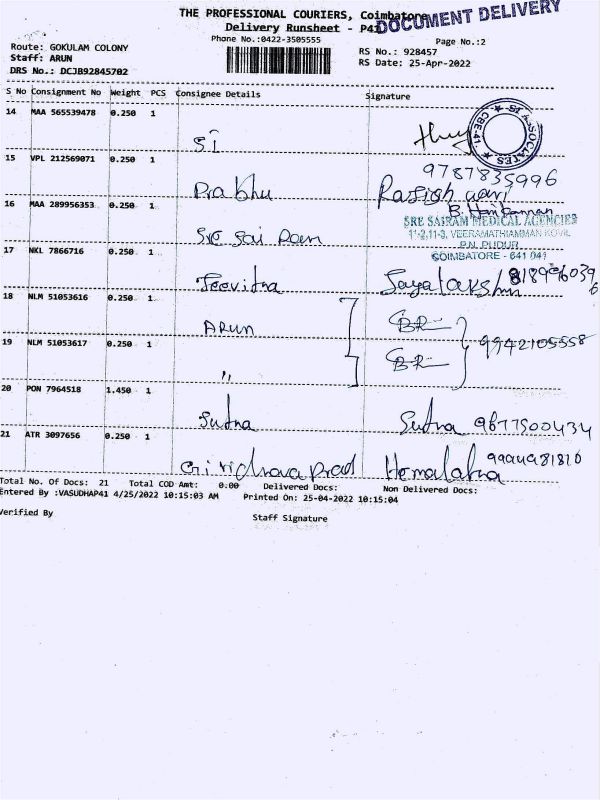 THE PROFESSIONAL COURIERS, Coimbatore
DOCUMENT DELIVERY
Delivery Runsheet - P41
Phone No.:0422-3505555
Page No.:2
Route: GOKULAM COLONY
RS No.: 928457
Staff: ARUN
RS Date: 25-Apr-2022
DRS No.: DCJB92845702
S No Consignment No Weight PCS Consignee Details Signature
14 MAA 565539478 0.250 1
Si
15 VPL 212569071 0.250 1
9787835996
Prabhu
16 MAA 289956353 0.250 1
SRE SAIRAM MEDICAL AGENCIES
Sre Sai Ram
P.N. PUDUR
COIMBATORE - 641 041
17 NKL 7866716 0.250 1
18 NLM 51053616 0.250 1
Arun
19 NLM 51053617 0.250 1
9942105558
"
20 PON 7964518 1.450 1
Sutha Sutha 9677500434
21 ATR 3097656 0.250 1
Hemalatha
Total No. Of Docs: 21 Total COD Amt: 0.00 Delivered Docs: Non Delivered Docs:
Entered By :VASUDHAP41 4/25/2022 10:15:03 AM Printed On: 25-04-2022 10:15:04
Verified By
Staff Signature